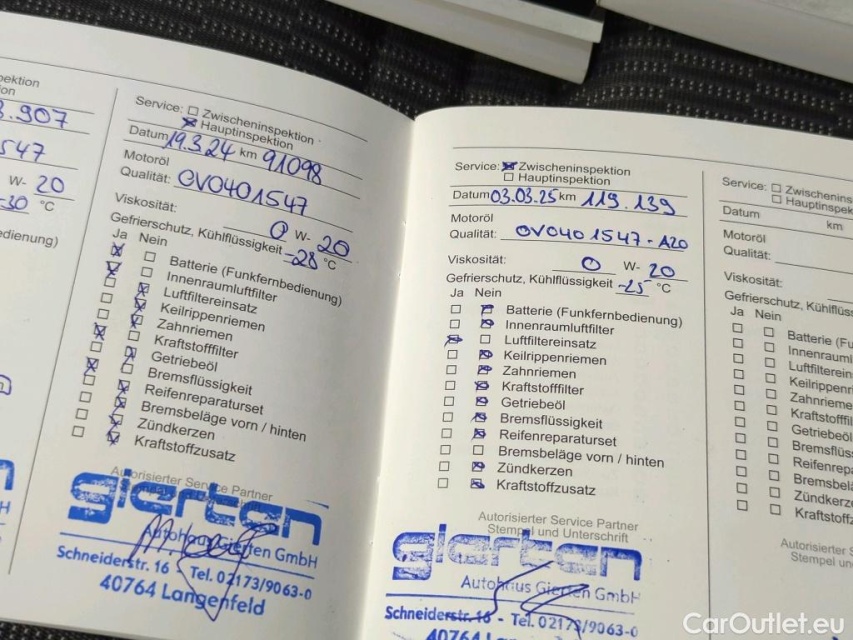 pektion
on
3.907
547
W- 20
-30 °C
dienung)
Service: Zwischeninspektion
Hauptinspektion
Datum 19.3.24 km 91098
Motoröl
Qualität: OVO401547
Viskosität: 0 W- 20
Gefrierschutz, Kühlflüssigkeit -28 °C
Ja Nein
Batterie (Funkfernbedienung)
Innenraumluftfilter
Luftfiltereinsatz
Keilrippenriemen
Zahnriemen
Kraftstofffilter
Getriebeöl
Bremsflüssigkeit
Reifenreparaturset
Bremsbeläge vorn / hinten
Zündkerzen
Kraftstoffzusatz
Autorisierter Service Partner
gierten
Autohaus Gierten GmbH
Schneiderstr. 16 Tel. 02173/9063-0
40764 Langenfeld
Service: Zwischeninspektion
Hauptinspektion
Datum 03.03.25 km 119.139
Motoröl
Qualität: OVO401547-A20
Viskosität: 0 W- 20
Gefrierschutz, Kühlflüssigkeit -25 °C
Ja Nein
Batterie (Funkfernbedienung)
Innenraumluftfilter
Luftfiltereinsatz
Keilrippenriemen
Zahnriemen
Kraftstofffilter
Getriebeöl
Bremsflüssigkeit
Reifenreparaturset
Bremsbeläge vorn / hinten
Zündkerzen
Kraftstoffzusatz
Autorisierter Service Partner
Stempel und Unterschrift
gierten
Autohaus Gierten GmbH
Schneiderstr. 16 - Tel. 02173/9063-0
40764 Langenfeld
Service: Zwischenins
Hauptinspek
Datum km
Motoröl
Qualität:
Viskosität:
Gefrierschutz, Kühlflüss
Ja Nein
Batterie (Fu
Innenrauml
Luftfilterein
Keilrippenri
Zahnrieme
Kraftstofffi
Getriebeöl
Bremsflüss
Reifenrepa
Bremsbelä
Zündkerze
Kraftstoffz
Autorisierter S
Stempel un
CarOutlet.eu